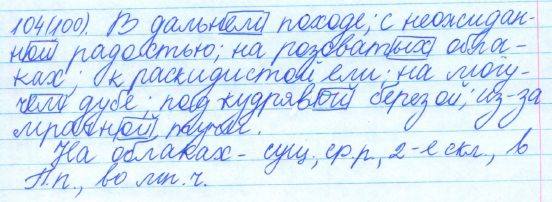 104(100). В дальнем походе; с неожидан-
ной радостью; на розоватых обла-
ках; к раскидистой ели; на могу-
чем дубе; под кудрявой березой; из-за
мрачной тучи.
На облаках - сущ., ср.р., 2-е скл., в
П.п., во мн.ч.